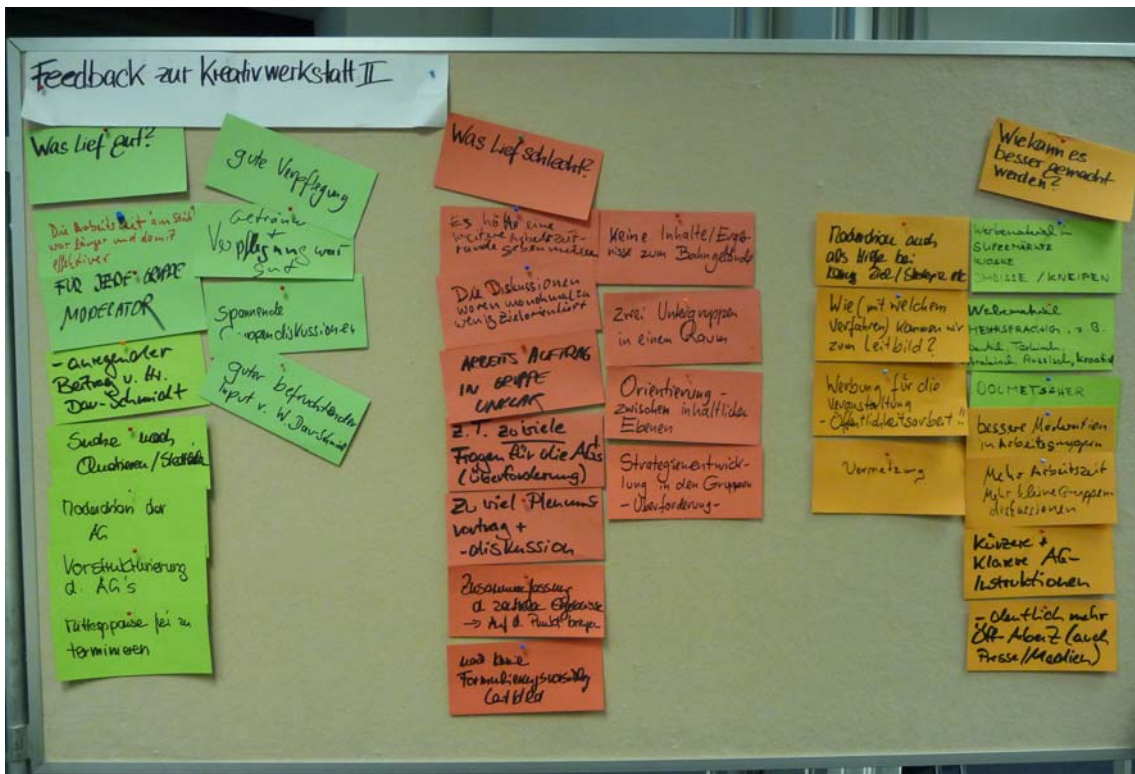 Feedback zur Kreativwerkstatt II
Was lief gut?
Die Arbeitszeit "am Stück"
war länger und damit
effektiver
FÜR JEDE GRUPPE
MODERATOR
- anregender
Beitrag v. Hr.
Dav-Schmidt
Suche nach
Moderation der
AG
Vorstrukturierung
d. AG's
Mittagspause frei zu
terminieren
gute Verpflegung
Getränke
+
Verpflegung war
gut
Spannende
Gruppendiskussionen
guter befruchtender
Input v. W. Dav-Schmidt
Was lief schlecht?
Es hätte eine
weitere Arbeitszeit-
runde geben müssen
Die Diskussionen
waren manchmal zu
wenig zielorientiert
ARBEITSAUFTRAG
IN GRUPPE
UNKLAR
z.T. zu viele
Fragen für die AGs
(Überforderung)
Zu viel Plenums
vortrag +
-diskussion
Zusammenfassung
d. Ergebnisse
→ Auf d. Punkt bringen
noch keine
Formulierungsvorschlag
Leitbild
Keine Inhalte/Ergeb-
nisse zum Bahngelände
Zwei Untergruppen
in einem Raum
Orientierung -
zwischen inhaltlichen
Ebenen
Strategieentwick-
lung in den Gruppen
- Überforderung -
Wie kann es
besser gemacht
werden?
Moderation auch
als Hilfe bei
Ziel/Strategie etc
Wie (mit welchem
Verfahren) kommen wir
zum Leitbild?
Werbung für die
Veranstaltung
- Öffentlichkeitsarbeit!!
Vernetzung
Werbematerial in
SUPERMÄRKTE
KIOSKE
IMBISSE / KNEIPEN
Werbematerial
MEHRSPRACHIG, z.B.
Deutsch, Türkisch,
Arabisch, Russisch, Kroatisch
DOLMETSCHER
bessere Moderation
in Arbeitsgruppen
Mehr Arbeitszeit
Mehr kleine Gruppen
diskussionen
Kürzere +
Klarere AG-
Instruktionen
- deutlich mehr
Öff-Arbeit (auch
Presse/Medien)